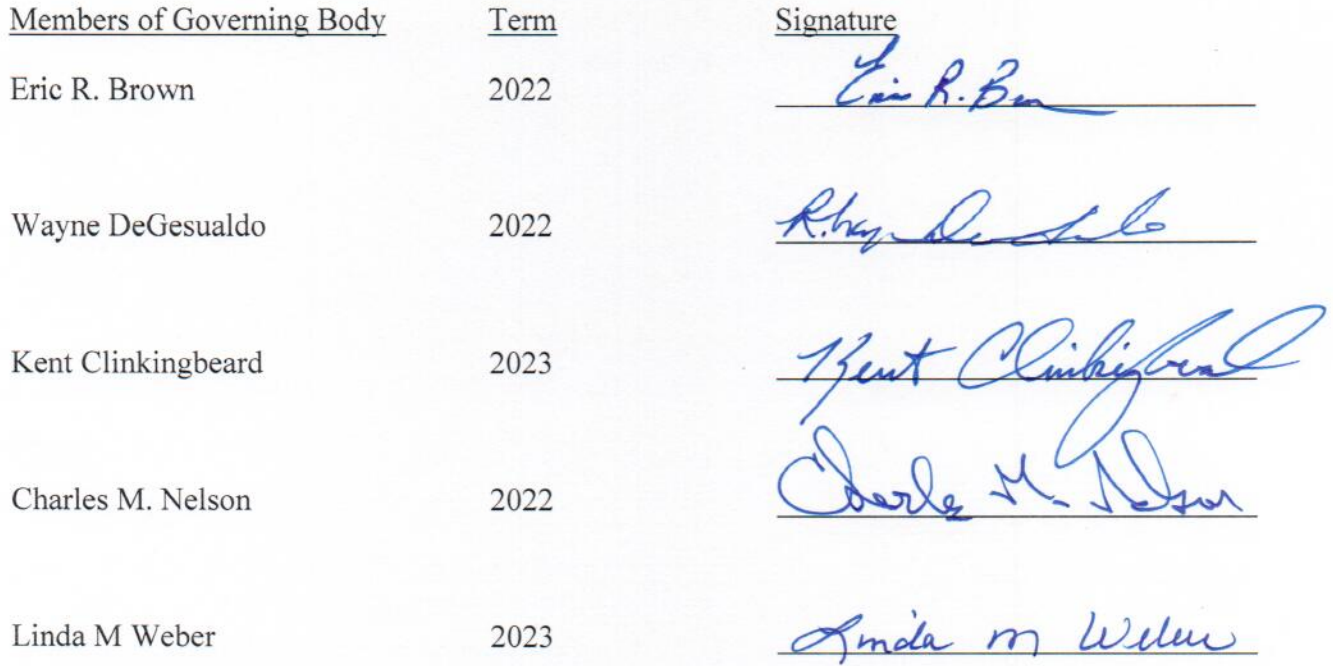 Members of Governing Body Term Signature
Eric R. Brown 2022 Eric R. B
Wayne DeGesualdo 2022 R.
Kent Clinkingbeard 2023 Kent Clinkingbeard
Charles M. Nelson 2022 Charles M. Nelson
Linda M Weber 2023 Linda M Weber